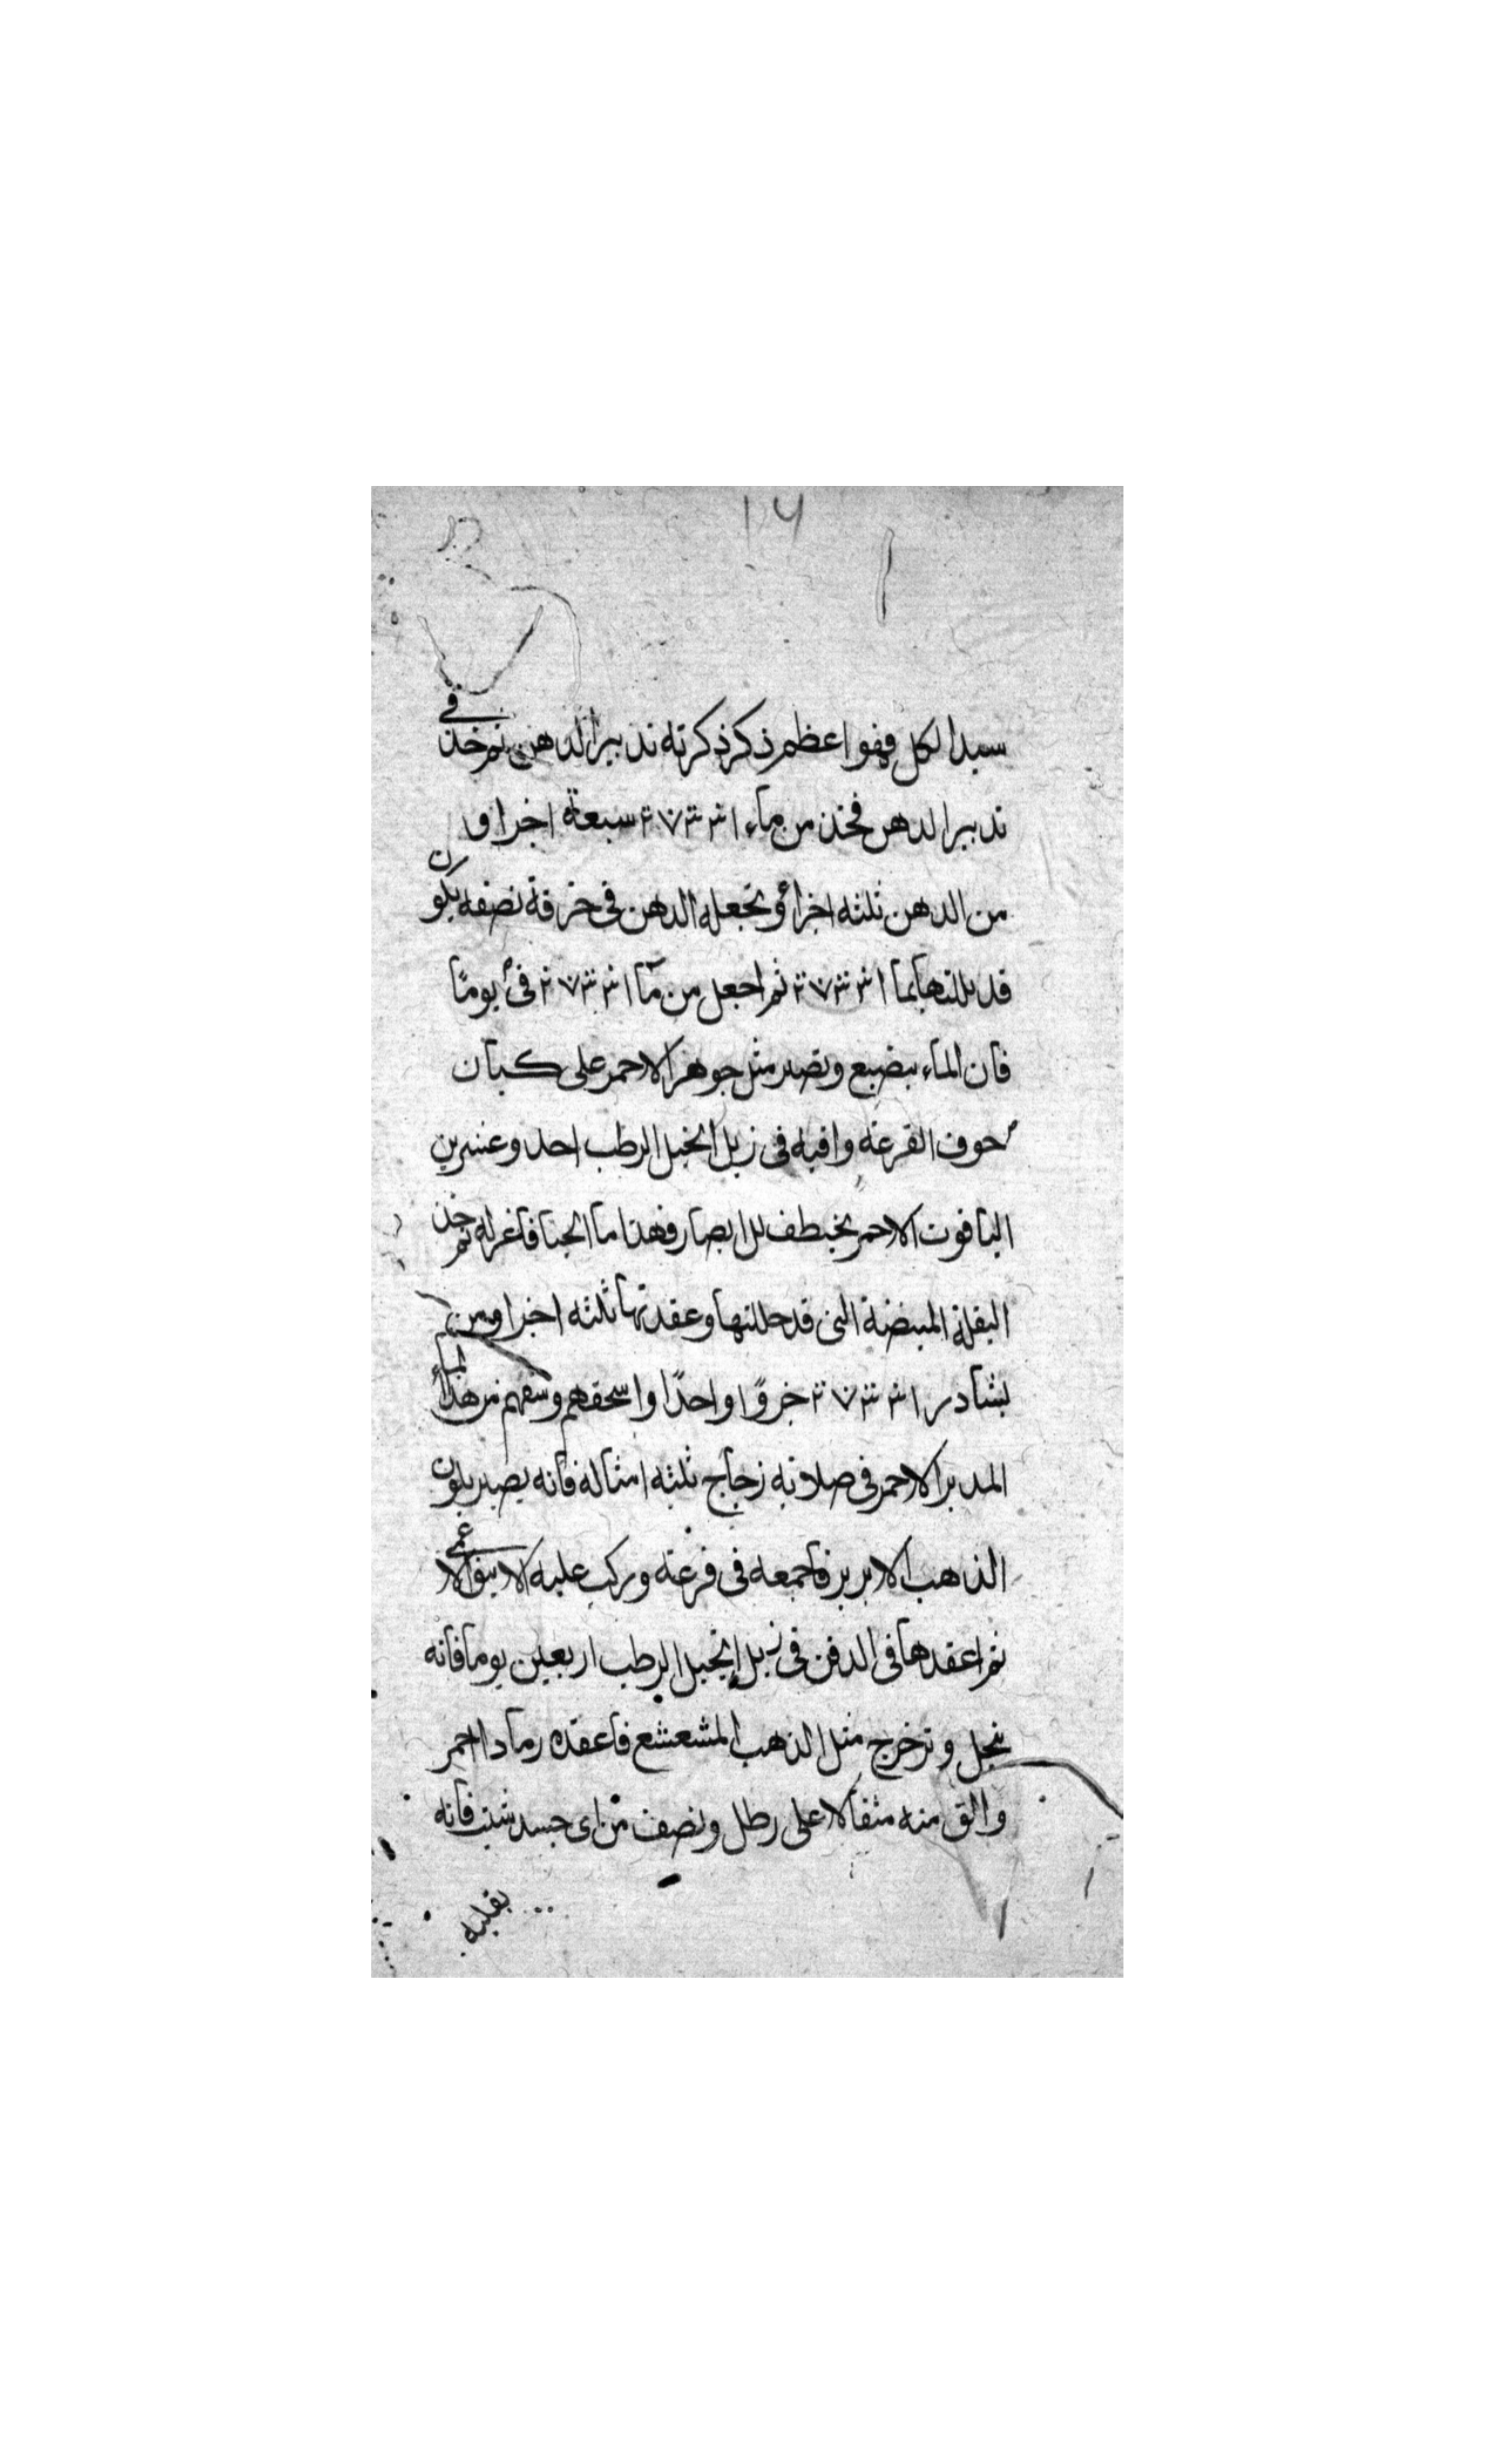 ١٧
سيد الكل فهو اعظم ذكر ذكرته تدبير الدهن ثم خذ في
تدبير الدهن فخذ من ماء سبعة اجزا و
من الدهن ثلثه اجزأ وتجعله الدهن في خرقة نصفه يكون
قد بللتها بما ثم اجعل من مآ في يومًا
فان المآء ينصبغ وتصير مثل جوهر الاحمر على كيان
حوف القرعه وافيه في زبل الخيل الرطب احد وعشرين
الياقوت الاحمر يخطف للابصار فهذا ما فاعزله ثم خذ
البقلة المبيضة التى قد حللتها وعقدتها ثلثه اجزا ومن
نشادر جزوًا واحدًا واسحقهم وسقهم من هذا المآء
المدبر الاحمر في صلايه زجاج ثلثه امثاله فانه يصير بلون
الذهب الابريز فاجمعه في قرعته وركب عليه الانبيق الاعمى
ثم اعقدها في الدفن في زبل الخيل الرطب اربعين يوما فانه
ينحل وتخرج مثل الذهب المشعشع فاعقده رمادا احمر
والق منه مثقالا على رطل ونصف من اى جسد شئت فانه
يقلبه